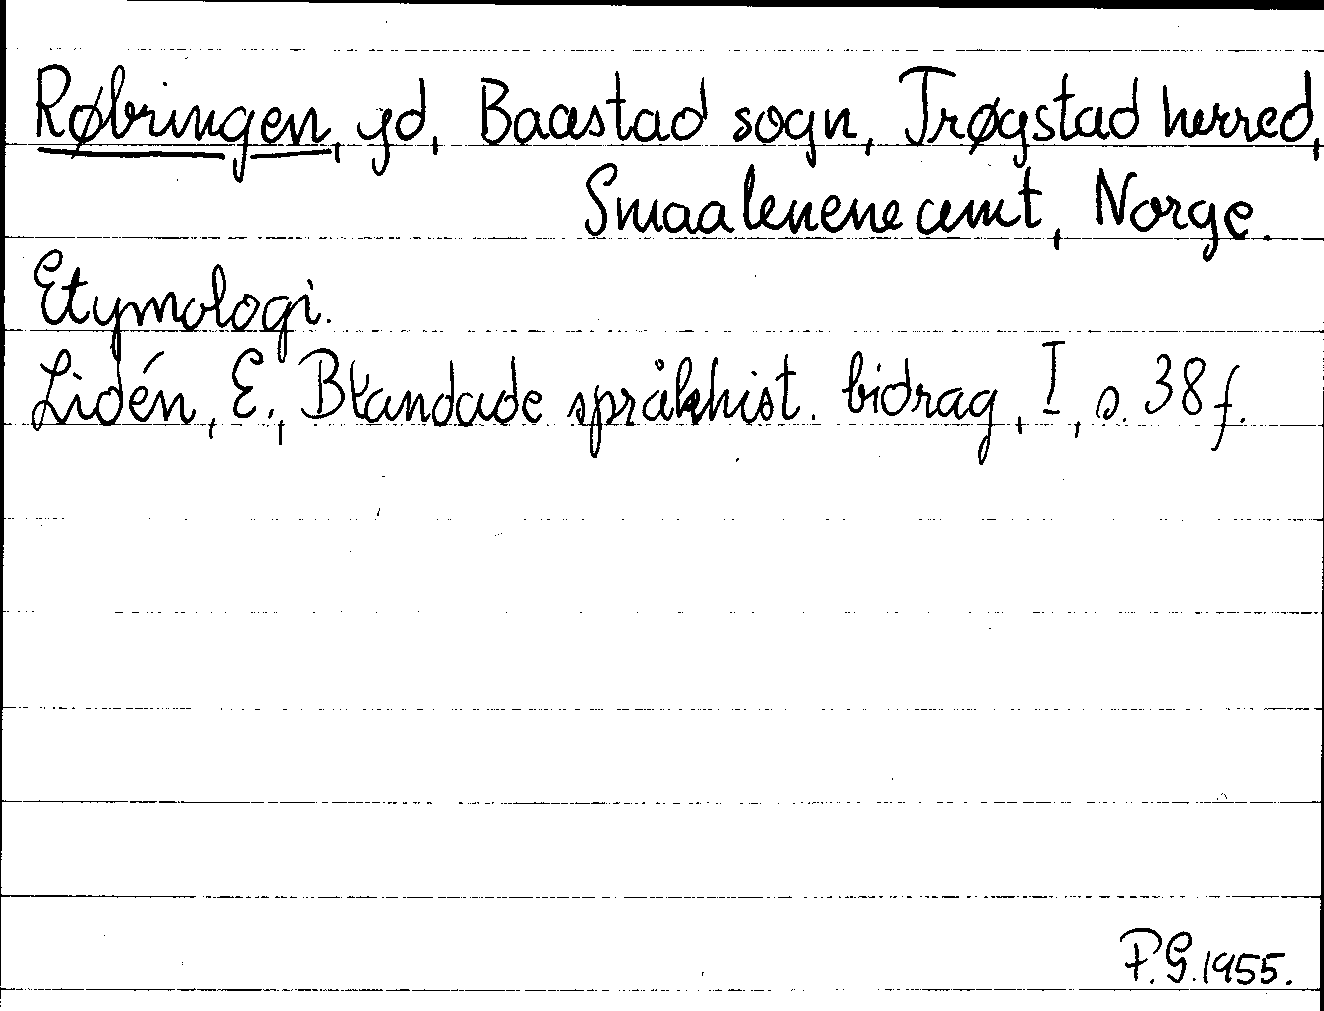 Røbringen, gd, Baastad sogn, Trøgstad herred,
Smaalenene amt, Norge.
Etymologi.
Lidén, E., Blandade språkhist. bidrag, I, s. 38 f.
P.G. 1955.